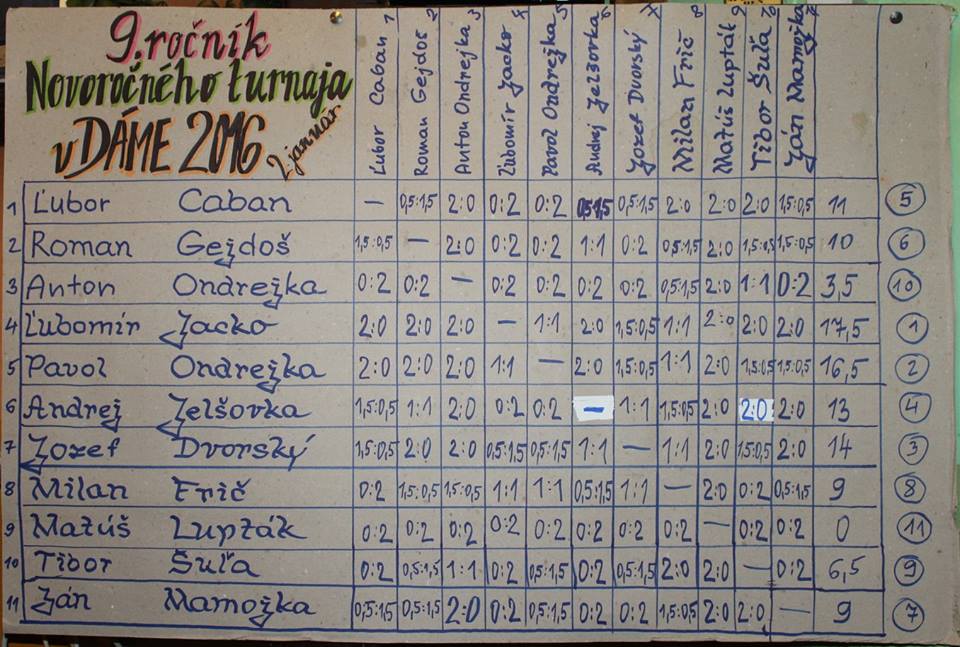 9. ročník
Novoročného turnaja
v DÁME 2016
2. január
1 2 3 4 5 6 7 8 9 10 11
Ľubor Caban
Roman Gejdoš
Anton Ondrejka
Ľubomír Jacko
Pavol Ondrejka
Andrej Jelšovka
Jozef Dvorský
Milan Frič
Matúš Lupták
Tibor Šuľa
Ján Mamojka
1 Ľubor Caban — 0,5:1,5 2:0 0:2 0:2 0,5:1,5 0,5:1,5 2:0 2:0 2:0 1,5:0,5 11 5
2 Roman Gejdoš 1,5:0,5 — 2:0 0:2 0:2 1:1 0:2 0,5:1,5 2:0 1,5:0,5 1,5:0,5 10 6
3 Anton Ondrejka 0:2 0:2 — 0:2 0:2 0:2 0:2 0,5:1,5 2:0 1:1 0:2 3,5 10
4 Ľubomír Jacko 2:0 2:0 2:0 — 1:1 2:0 1,5:0,5 1:1 2:0 2:0 2:0 17,5 1
5 Pavol Ondrejka 2:0 2:0 2:0 1:1 — 2:0 1,5:0,5 1:1 2:0 1,5:0,5 1,5:0,5 16,5 2
6 Andrej Jelšovka 1,5:0,5 1:1 2:0 0:2 0:2 — 1:1 1,5:0,5 2:0 2:0 2:0 13 4
7 Jozef Dvorský 1,5:0,5 2:0 2:0 0,5:1,5 0,5:1,5 1:1 — 1:1 2:0 1,5:0,5 2:0 14 3
8 Milan Frič 0:2 1,5:0,5 1,5:0,5 1:1 1:1 0,5:1,5 1:1 — 2:0 0:2 0,5:1,5 9 8
9 Matúš Lupták 0:2 0:2 0:2 0:2 0:2 0:2 0:2 0:2 — 0:2 0:2 0 11
10 Tibor Šuľa 0:2 0,5:1,5 1:1 0:2 0,5:1,5 0:2 0,5:1,5 2:0 2:0 — 0:2 6,5 9
11 Ján Mamojka 0,5:1,5 0,5:1,5 2:0 0:2 0,5:1,5 0:2 0:2 1,5:0,5 2:0 2:0 — 9 7